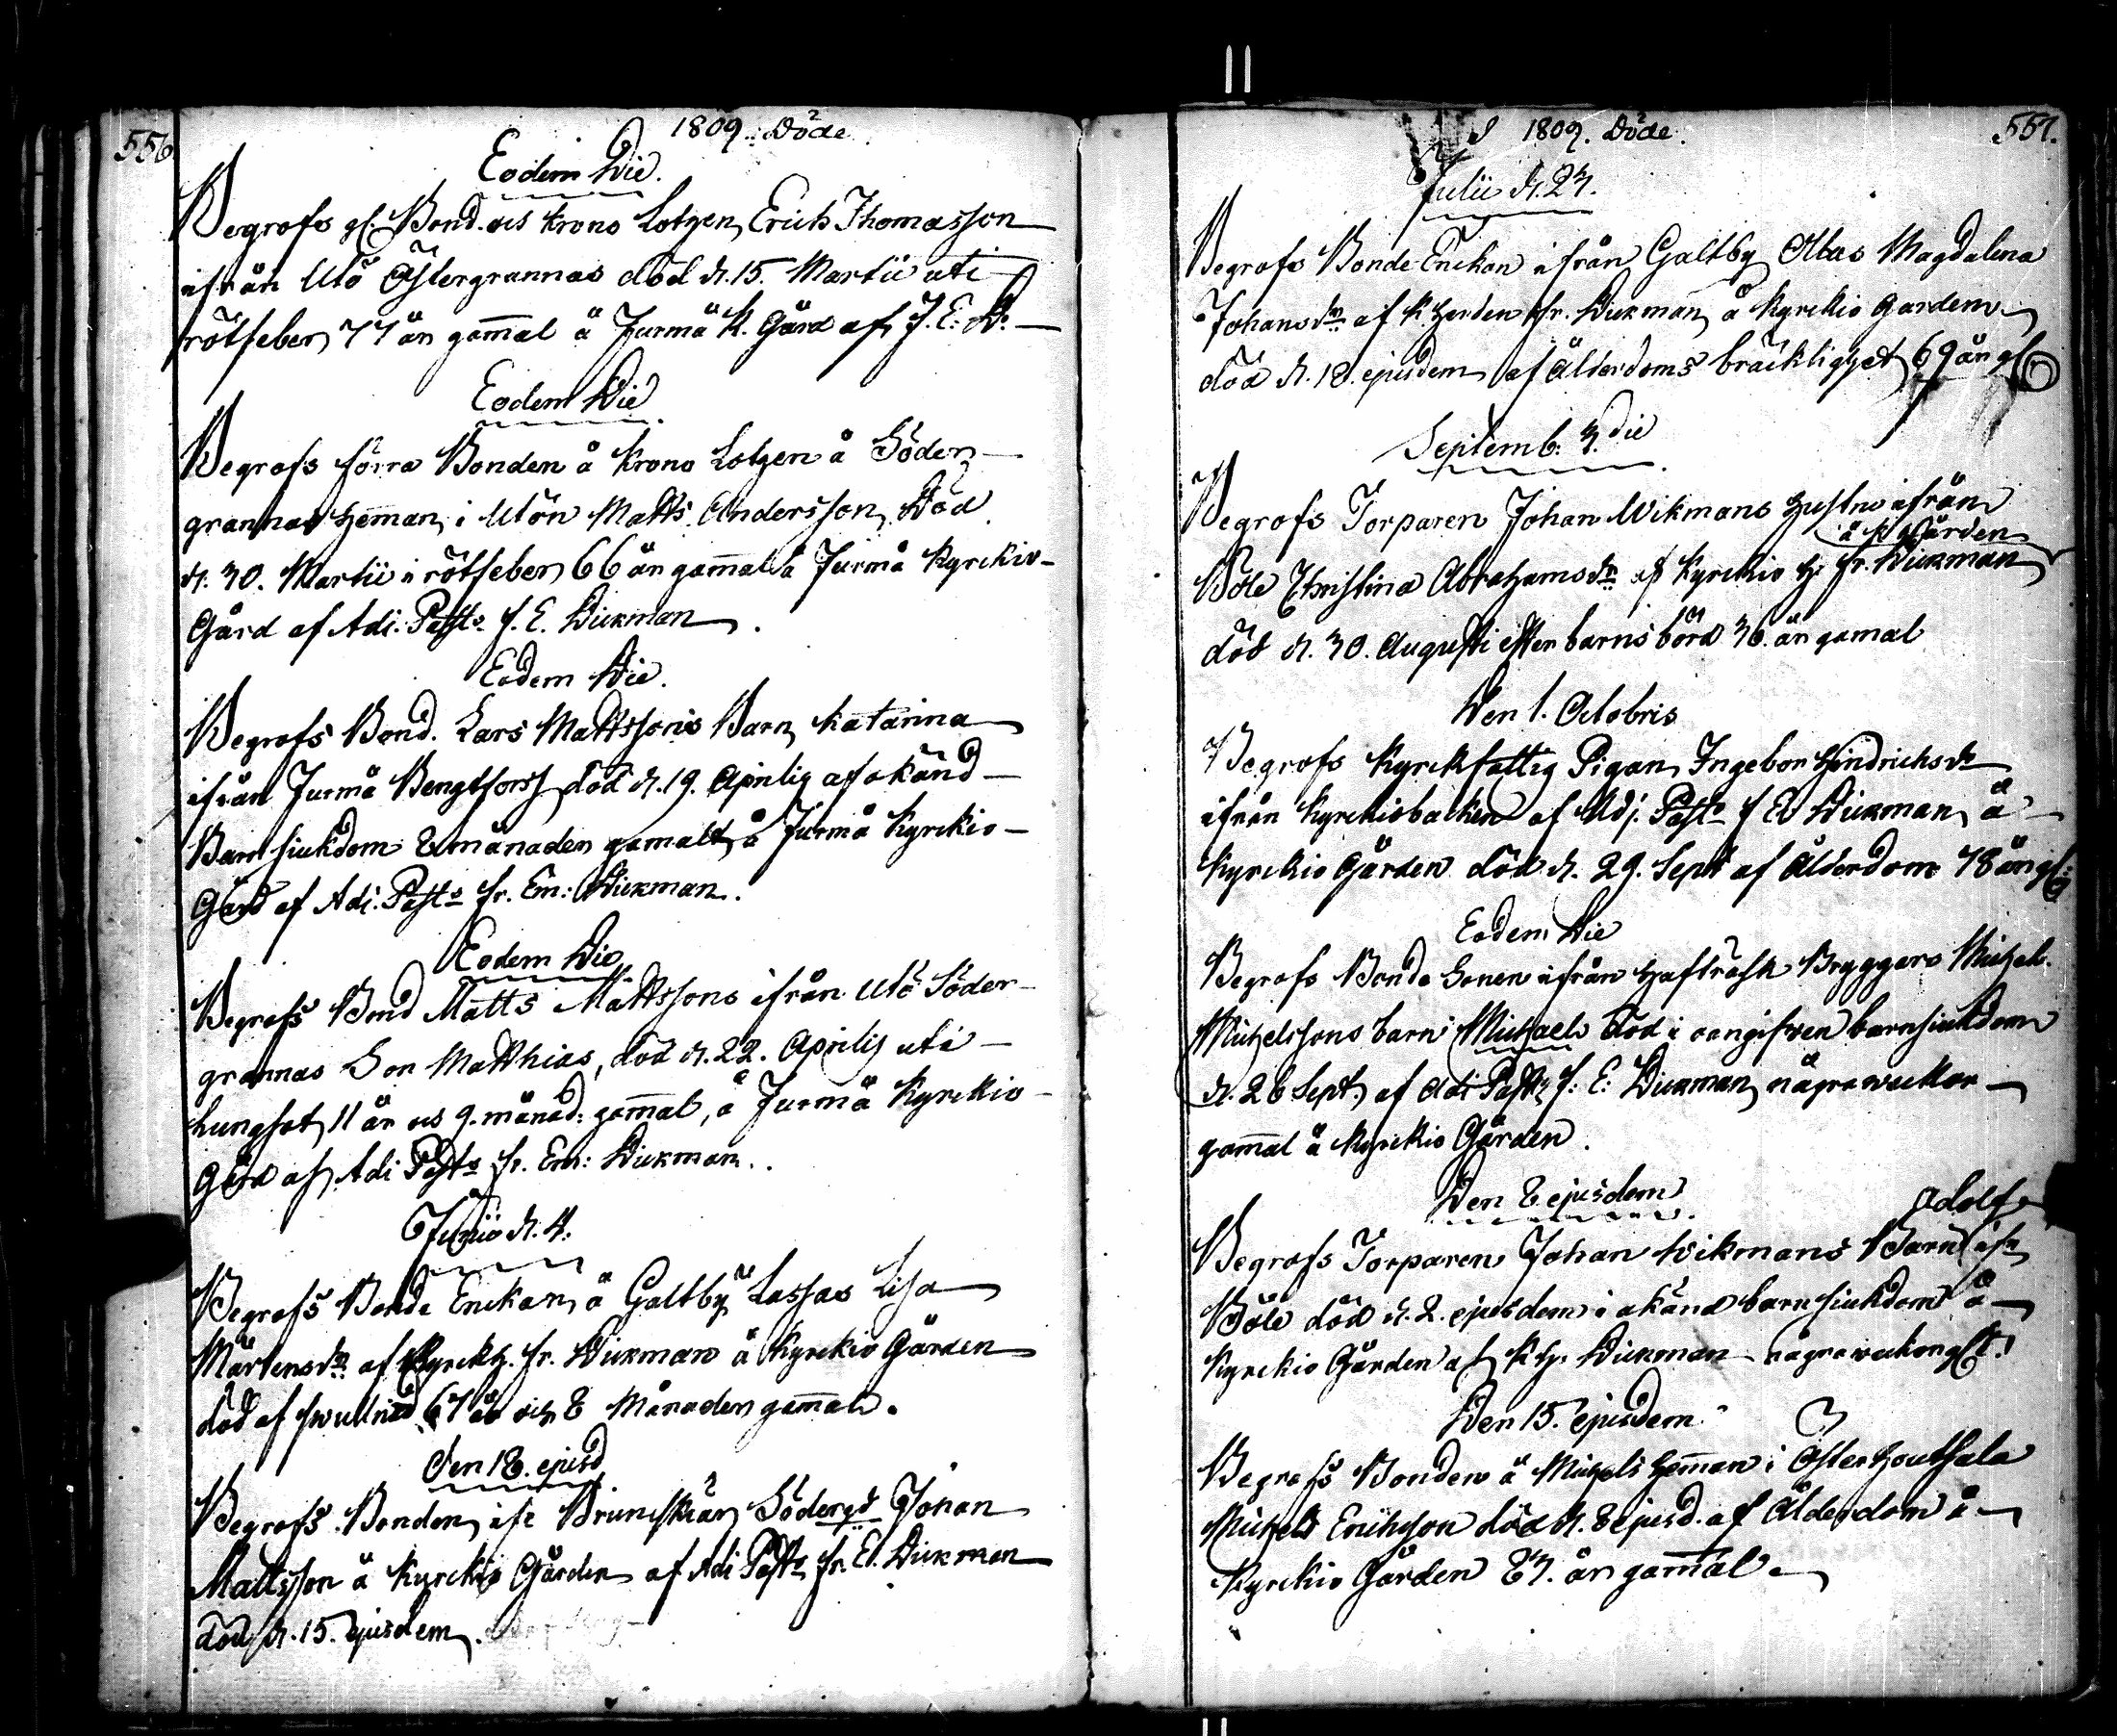 556
1809. Döde
Eodem Die.
Begrofs gl. Bond. och krono Lotzen, Erich Thomasson
ifrån Utö Östergrannas död d. 15. Martii uti
rötfeber, 77 år gam̄al å Jurmå K. Gård af, F. E. D.
Eodem Die
Begrofs förra Bonden å krono Lotzen å Söder-
grannas Hem̄an, i Utön Matts Andersson, Död
d. 30. Martii i rötfeber, 66 år gam̄al å Jurmå Kyrckio-
Gård af Adi. Past: f. E. Dickman.
Eodem Die.
Begrofs Bond. Lars Mattssons Barn, Katarina
ifrån Jurmå Bengtfors, död d. 19. Aprilis af okänd
Barn siukdom 8 månader gamalt, å Jurmå Kyrckio-
Gård af Adi. Past: fr. Em: Dickman.
Eodem Die
Begrofs Bond Matts Mattssons ifrån Utö Söder-
grannas Son Matthias, död d. 22. Aprilis uti
lungsot, 11 år och 9. månad: gam̄al, å Jurmå Kyrckio
Gård af, Adi Past: fr. Em: Dickman.
Junii d. 4.
Begrofs Bonde Enckan, å Galtby Lassas Lisa
Mårtensdr. af Kyrckh. fr. Dickman å Kyrckio Gården
död af swullnad 67 år och 8 Månader gam̄al.
den 18. ejusd
Begrofs Bonden, ifr Brunskiär, Södergd Johan
Mattsson å Kyrckio Gården af Adi Past: fr. E. Dickman
död d. 15. ejusdem.
1809. Döde.
557.
Julii d. 23.
Begrofs Bonde-Enckan ifrån Galtby Ollas Magdalena
Johansdr. af K. Herden fr. Dickman, å Kyrckio garden
död d. 18. ejusdem af Ålderdoms bräcklighet, 69 år gl
Septemb: 3. die
Begrofs Torparen Johan Wikmans Hustru ifrån
å K Gården
Böle Christina Abrahamsdr. af Kyrckio H. fr. Dickman
död d. 30. Augusti efter barnsbörd 36. år gamal
Den 1. Octobris
Begrofs Kyrckfattig Pigan, Ingebor Hindrichsdr
ifrån Kyrckiobacken af Adj. Past: f E Dickman, å
Kyrckio Gården död d. 29. Sept af Ålderdom 78 år gl:
Eodem Die
Begrofs Bonde Sonen ifrån Hafträsk Bryggars Michel
Michelssons barn Michael död i oangifwen barnsiukdom
d. 26 Sept. af Adi Past: f. E: Dickman, några weckor
gam̄al å Kyrckio Gården.
Den 8 ejusdem
Adolf
Begrofs Torparen Johan Wikmans Barn ifr
Böle död d. 2. ejusdem i okänd barnsiukdom å
Kyrckio Gården af K H. Dickman några weckor glt.
Den 15. ejusdem
Begrofs Bonden å Michels Hem̄an i Österhoutskla
Michel Erichsson död d. 8 ejusd. af Ålderdom å
Kyrckio Gården 83. år gam̄al.